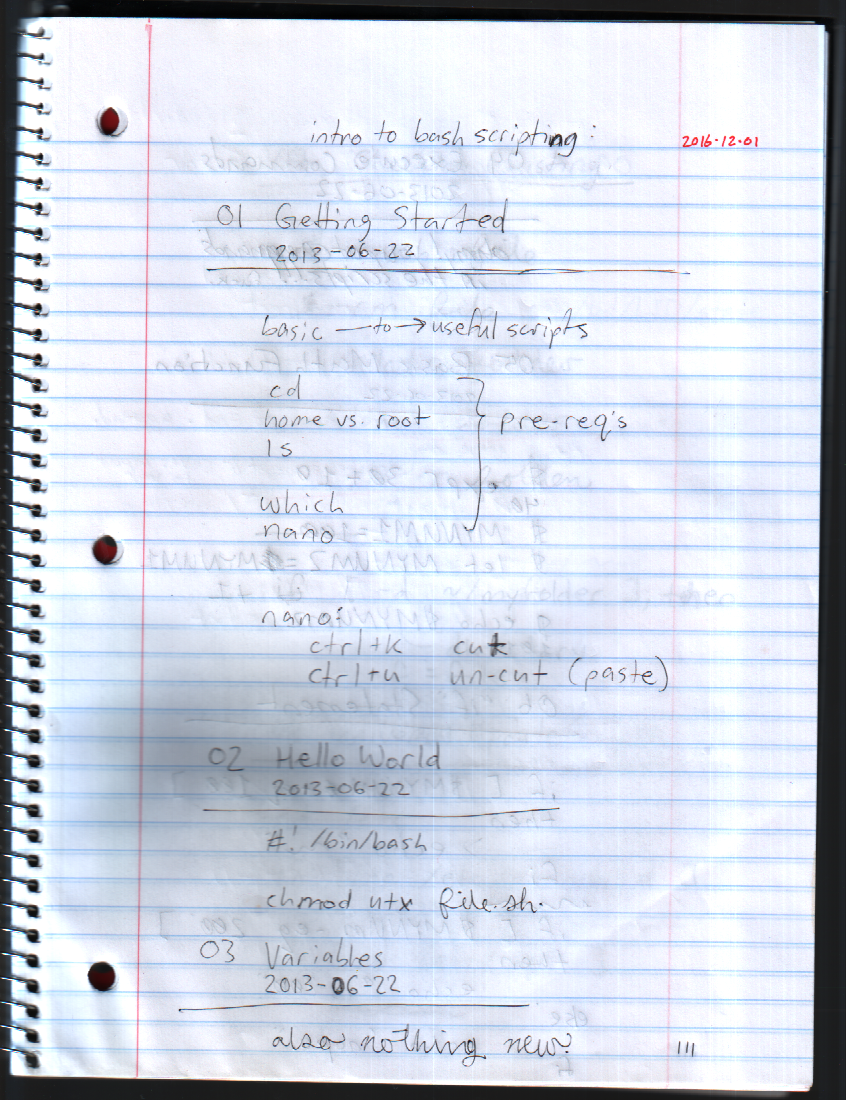 intro to bash scripting:
2016.12.01
01 Getting Started
2013-06-22
basic —to→ useful scripts
cd
home vs. root
ls
pre-req's
which
nano
nano:
ctrl+k cut
ctrl+u un-cut (paste)
02 Hello World
2013-06-22
#! /bin/bash
chmod u+x file.sh.
03 Variables
2013-06-22
also nothing new?
111